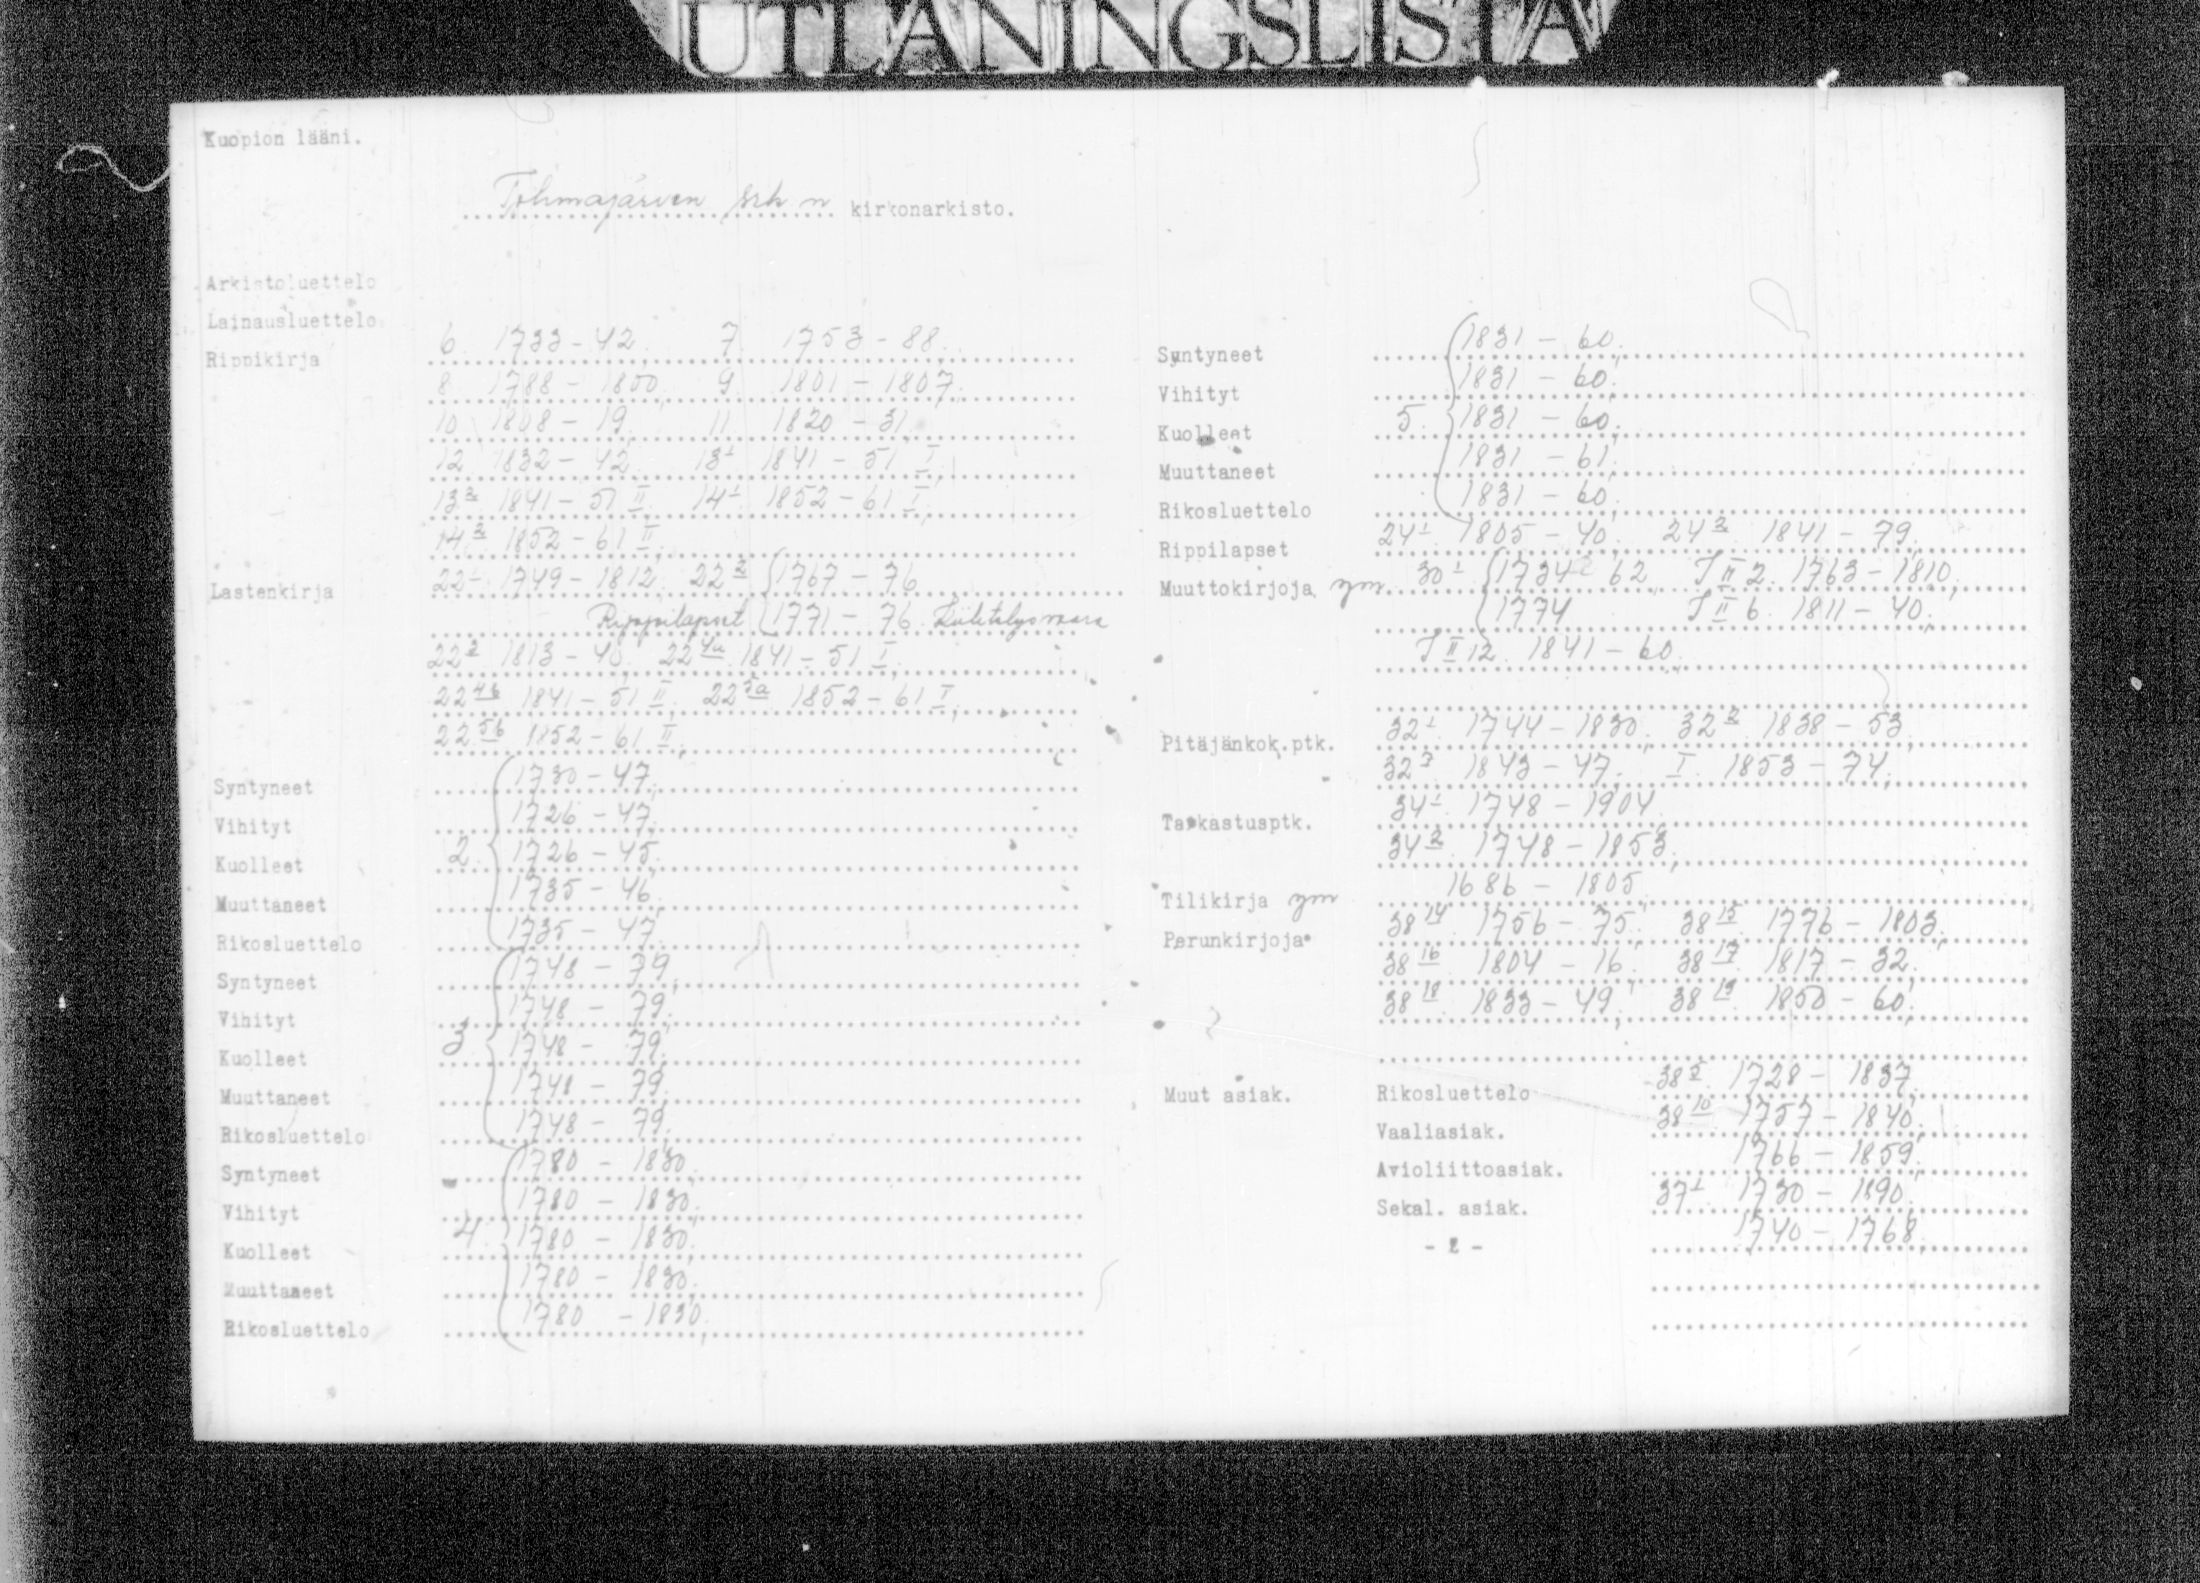 UTLÅNINGSLISTA
Kuopion lääni.
Tohmajärven srk n kirkonarkisto.
Arkistoluettelo
Lainausluettelo
Rippikirja 6. 1733-42. 7. 1753-88,
8 1788-1800, 9 1801-1807,
10 1808-19, 11 1820-31,
12 1832-42, 13 1 1841-51 I,
13 2 1841-51 II, 14 1 1852-61 I,
14 2 1852-61 II,
Lastenkirja 22 1 1749-1812, 22 2 {1767-76
Rippilapset {1771-76
22 3 1813-40, 22 4a 1841-51 I,
22 4b 1841-51 II, 22 5a 1852-61 I,
22 5b 1852-61 II,
Syntyneet 1730-47,
Vihityt 1726-47,
Kuolleet 2. 1726-45,
Muuttaneet 1735-46,
Rikosluettelo 1735-47,
Syntyneet 1748-79,
Vihityt 1748-79,
Kuolleet 3 1748-79,
Muuttaneet 1748-79,
Rikosluettelo 1748-79,
Syntyneet 1780-1830,
Vihityt 1780-1830,
Kuolleet 4. 1780-1830,
Muuttaneet 1780-1830,
Rikosluettelo 1780-1830,
Syntyneet 1831-60,
Vihityt 1831-60,
Kuolleet 5. 1831-60,
Muuttaneet 1831-61,
Rikosluettelo 1831-60,
Rippilapset 24 1 1805-40, 24 2 1841-79,
Muuttokirjoja ym. 30 1 {1734-62, I II 2. 1763-1810,
{1774 I II 6. 1811-40,
I II 12. 1841-60.
Pitäjänkok.ptk. 32 1 1744-1830, 32 2 1838-53,
32 3 1843-47, I. 1853-74,
Tarkastusptk. 34 1 1748-1904,
34 2 1748-1853,
Tilikirja ym 1686-1805,
Perunkirjoja 38 14 1756-75, 38 15 1776-1803,
38 16 1804-16, 38 17 1817-32,
38 18 1833-49, 38 19 1850-60,
Muut asiak. Rikosluettelo 1728-1837,
Vaaliasiak. 38 10 1757-1840,
Avioliittoasiak. 1766-1859,
Sekal. asiak. 37 1 1730-1890,
1740-1768,